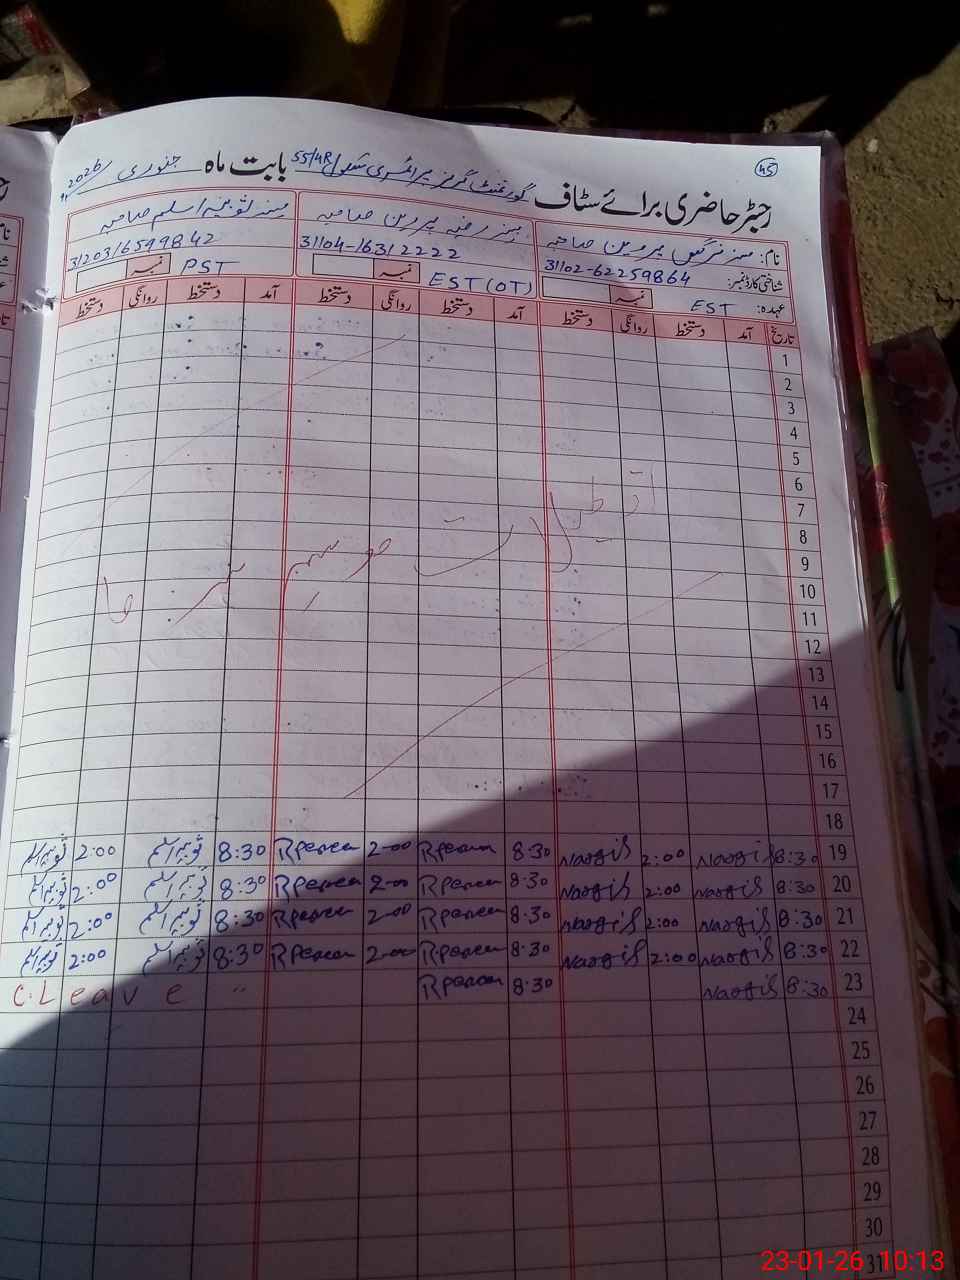 45
رجسٹر حاضری برائے سٹاف گورنمنٹ گرلز پرائمری سکول 55/4R بابت ماہ جنوری 2026
نام: مسز نرگس پروین صاحبہ مسز رضیہ پروین صاحبہ مسز ثوبیہ اسلم صاحبہ
شناختی کارڈ نمبر: 31102-62259864 31104-16312222 31203/6599842
عہدہ: EST نمبر EST (OT) نمبر PST نمبر
تاریخ آمد دستخط روانگی دستخط آمد دستخط روانگی دستخط آمد دستخط روانگی دستخط
1
2
3
4
5
6
7
8
9
10
11
12
13
14
15
16
17
18
تعطیلات موسم سرما
19 8:30 Nargis 2:00 Nargis 8:30 Rperveen 2:00 Rperveen 8:30 ثوبیہ اسلم 2:00 ثوبیہ اسلم
20 8:30 Nargis 2:00 Nargis 8:30 Rperveen 2:00 Rperveen 8:30 ثوبیہ اسلم 2:00 ثوبیہ اسلم
21 8:30 Nargis 2:00 Nargis 8:30 Rperveen 2:00 Rperveen 8:30 ثوبیہ اسلم 2:00 ثوبیہ اسلم
22 8:30 Nargis 2:00 Nargis 8:30 Rperveen 2:00 Rperveen 8:30 ثوبیہ اسلم 2:00 ثوبیہ اسلم
23 8:30 Nargis 8:30 Rperveen C.Leave
24
25
26
27
28
29
30
31
23-01-26 10:13